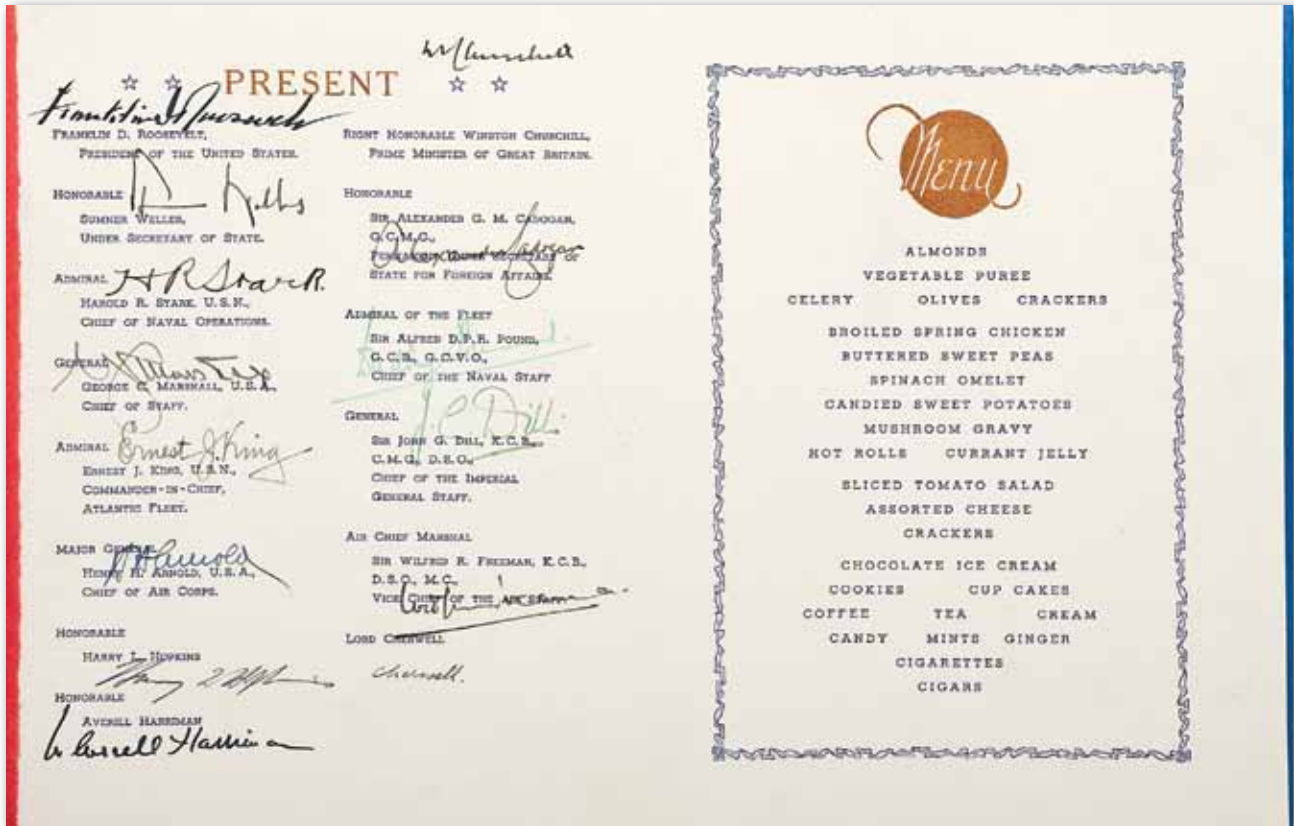 W S Churchill
☆ ☆ PRESENT ☆ ☆
Franklin D Roosevelt
FRANKLIN D. ROOSEVELT,
PRESIDENT OF THE UNITED STATES.
HONORABLE
SUMNER WELLES,
UNDER SECRETARY OF STATE.
ADMIRAL H R Stark.
HAROLD R. STARK, U.S.N.,
CHIEF OF NAVAL OPERATIONS.
GENERAL
GEORGE C. MARSHALL, U.S.A.,
CHIEF OF STAFF.
ADMIRAL Ernest J. King
ERNEST J. KING, U.S.N.,
COMMANDER-IN-CHIEF,
ATLANTIC FLEET.
MAJOR GENERAL
H H Arnold
HENRY H. ARNOLD, U.S.A.,
CHIEF OF AIR CORPS.
HONORABLE
HARRY L. HOPKINS
Harry L Hopkins
HONORABLE
AVERILL HARRIMAN
W Averell Harriman
RIGHT HONORABLE WINSTON CHURCHILL,
PRIME MINISTER OF GREAT BRITAIN.
HONORABLE
SIR ALEXANDER G. M. CADOGAN,
G.C.M.G.,
Alexander Cadogan
PERMANENT UNDER SECRETARY OF
STATE FOR FOREIGN AFFAIRS.
ADMIRAL OF THE FLEET
SIR ALFRED D.P.R. POUND,
G.C.B., G.C.V.O.,
CHIEF OF THE NAVAL STAFF
GENERAL J. C. Dill.
SIR JOHN G. DILL, K.C.B.,
C.M.G., D.S.O.,
CHIEF OF THE IMPERIAL
GENERAL STAFF.
AIR CHIEF MARSHAL
SIR WILFRED R. FREEMAN, K.C.B.,
D.S.O., M.C.,
VICE CHIEF OF THE AIR STAFF
LORD CHERWELL
Cherwell.
Menu
ALMONDS
VEGETABLE PUREE
CELERY OLIVES CRACKERS
BROILED SPRING CHICKEN
BUTTERED SWEET PEAS
SPINACH OMELET
CANDIED SWEET POTATOES
MUSHROOM GRAVY
HOT ROLLS CURRANT JELLY
SLICED TOMATO SALAD
ASSORTED CHEESE
CRACKERS
CHOCOLATE ICE CREAM
COOKIES CUP CAKES
COFFEE TEA CREAM
CANDY MINTS GINGER
CIGARETTES
CIGARS